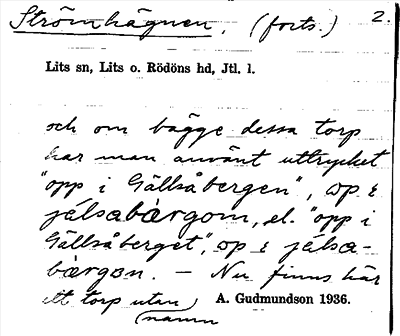 Strömhägnen, (forts.) 2.
Lits sn, Lits o. Rödöns hd, Jtl. l.
och om bägge dessa torp
har man använt uttrycket
"opp i Gällsåbergen", op i
jélsabàrgom, el. "opp i
Gällsåberget", op i jélsa-
bàrgən. – Nu finns här
ett torp utan
namn
A. Gudmundson 1936.